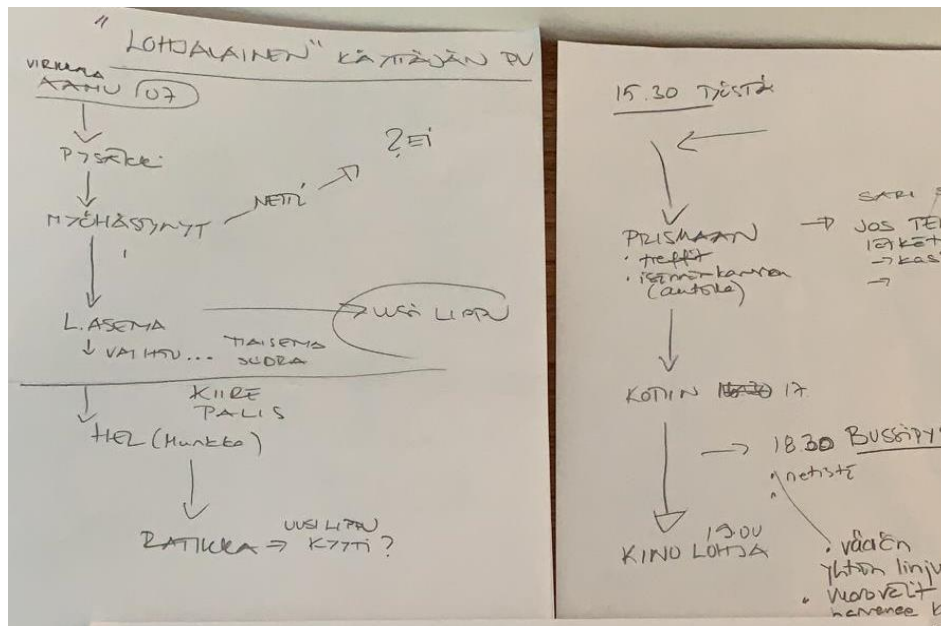 "LOHJALAINEN" KÄYTTÄJÄN PV
AAMU 07
PYSÄKKI
MYÖHÄSTYNYT
NETTI
? EI
L. ASEMA
UUSI LIPPU
↓ VAIHTO... MAISEMA
SUORA
KIIRE
PALIS
HEL (Munkka)
RATIKKA ⇒ UUSI LIPPU
KYYTI ?
15.30 TÖISTÄ
PRISMAAN
· treffit
(autolla)
SARI
JOS
KOTIIN 17
18.30 BUSSIPY
· netistä
19.00
KINO LOHJA
· väärän
yhtiön linju
· vuorovälit
harvenee k